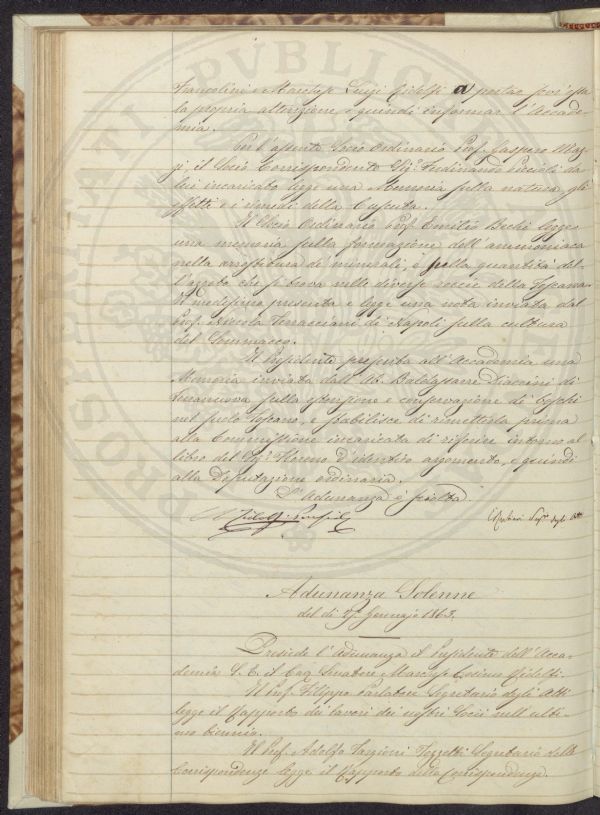 Marchese Luigi Ridolfi a portar sovr'essa
la propria attenzione, e quindi informar l'Accade-
mia.
Per l'assente Socio Ordinario Prof. Gaspero
il Socio Corrispondente Sig. Ferdinando Piccioli da
lui incaricato legge una Memoria sulla natura, gli
effetti e i rimedi della Cuscuta.
Il Socio Ordinario Prof. Emilio Bechi legge
una memoria sulla formazione dell'ammoniaca
nella arrostitura de' minerali, e sulla quantità del-
l'azoto che si trova nelle diverse roccie della Toscana.
Il medesimo presenta e legge una nota inviata dal
Prof. Nicola Terracciani di Napoli sulla cultura
del Sommacco.
Il Presidente presenta all'Accademia una
Memoria inviata dall'Ab. Baldassarre di
Terranuova sulla estensione e conservazione di boschi
nel suolo Toscano, e stabilisce di rimetterla prima
alla Commissione incaricata di riferire intorno al
libro del Sig. d'identico argomento, e quindi
alla Deputazione ordinaria.
L'Adunanza è sciolta.
Seg.rio degli Atti
Adunanza Solenne
del dì Gennajo 1863.
Presiede l'adunanza il Presidente dell'Acca-
demia S. E. il Cav. Senatore Marchese Cosimo Ridolfi.
Il Prof. Filippo Parlatore Segretario degli Atti
legge il Rapporto dei lavori dei nostri Socii nell'ulti-
mo biennio.
Il Prof. Adolfo Targioni Tozzetti Segretario delle
Corrispondenze legge il Rapporto della Corrispondenza.